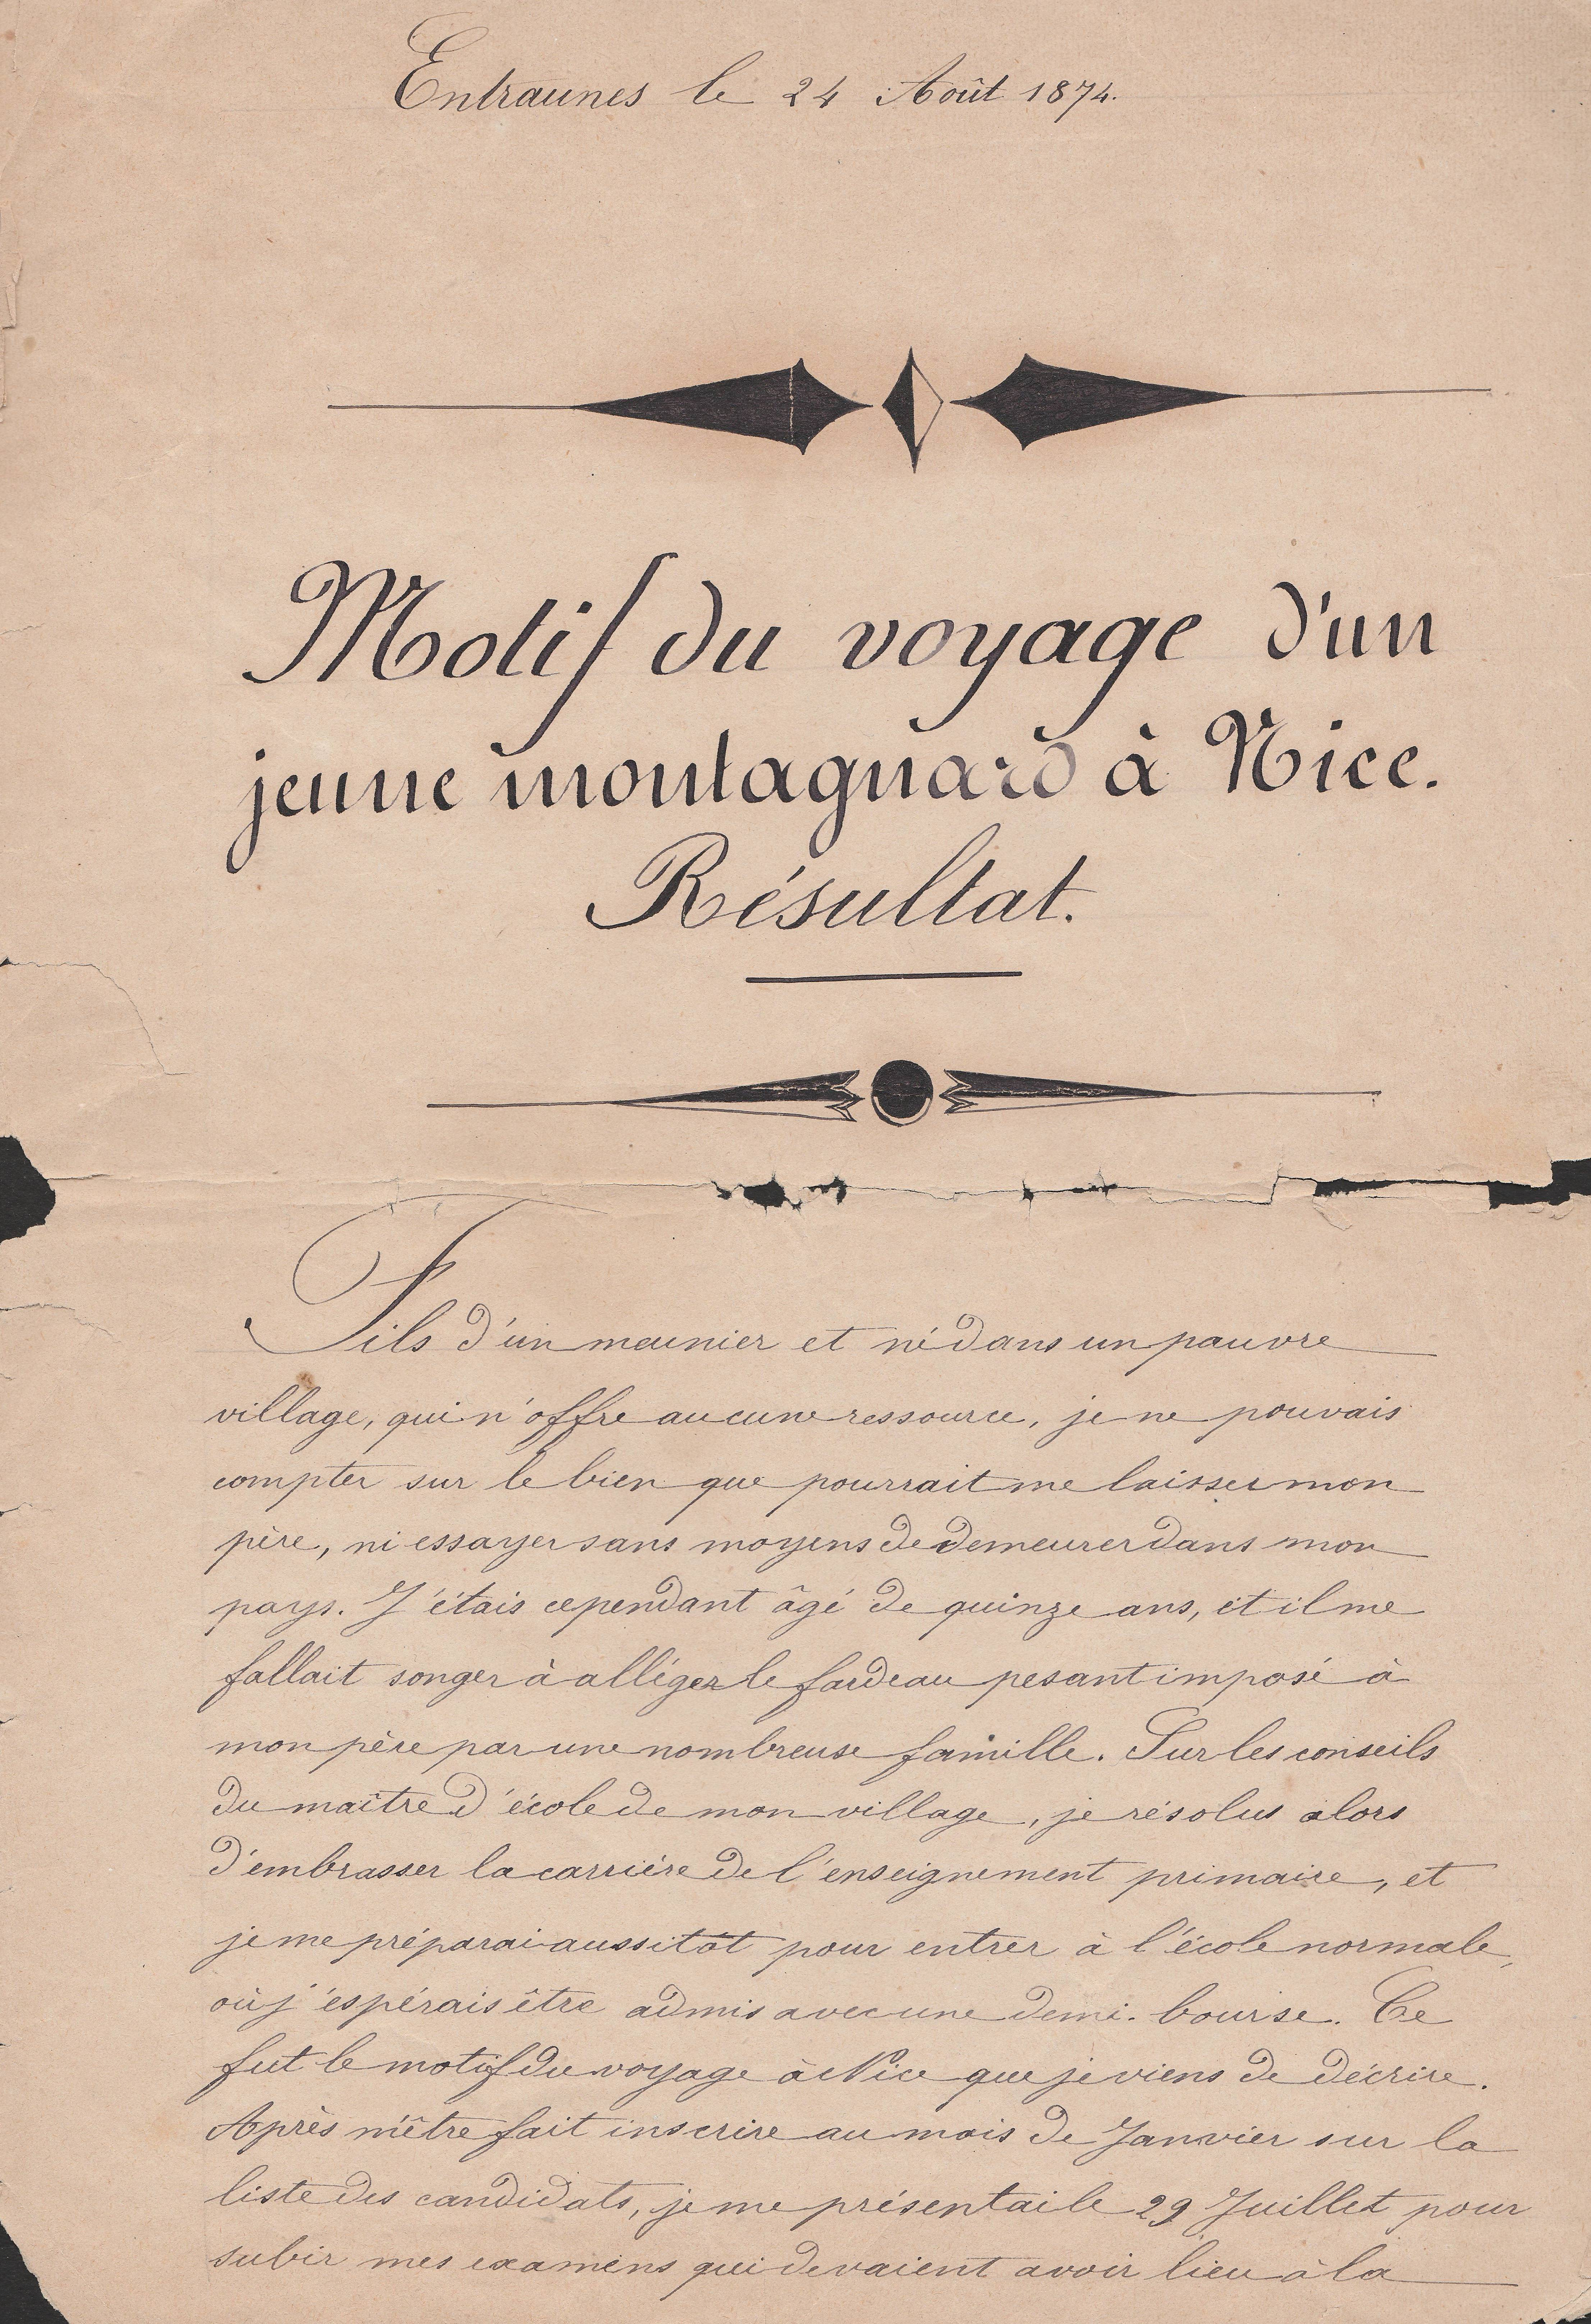 Entraunes le 24 Août 1874.
Motif du voyage d'un
jeune montagnard à Nice.
Résultat.
Fils d'un meunier et né dans un pauvre
village, qui n'offre aucune ressource, je ne pouvais
compter sur le bien que pourrait me laisser mon
père, ni essayer sans moyens de demeurer dans mon
pays. J'étais cependant âgé de quinze ans, et il me
fallait songer à alléger le fardeau pesant imposé à
mon père par une nombreuse famille. Sur les conseils
du maître d'école de mon village, je résolus alors
d'embrasser la carrière de l'enseignement primaire, et
je me préparai aussitôt pour entrer à l'école normale,
où j'espérais être admis avec une demi-bourse. Ce
fut le motif du voyage à Nice que je viens de décrire.
Après m'être fait inscrire au mois de Janvier sur la
liste des candidats, je me présentai le 29 Juillet pour
subir mes examens qui devaient avoir lieu à la